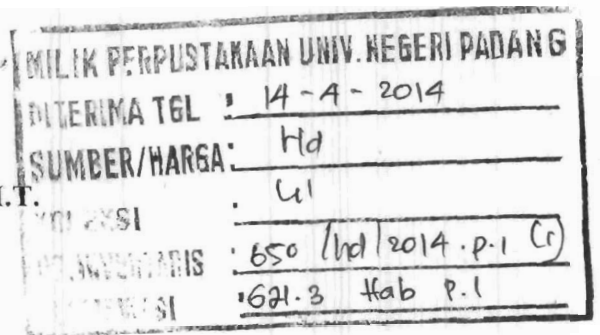 MILIK PERPUSTAKAAN UNIV. NEGERI PADANG
DITERIMA TGL : 14 - 4 - 2014
SUMBER/HARGA : Hd
I.T.
KOLEKSI : KI
NO. INVENTARIS : 650 /hd/2014 . p.1 (r)
: 621.3 Hab p.1